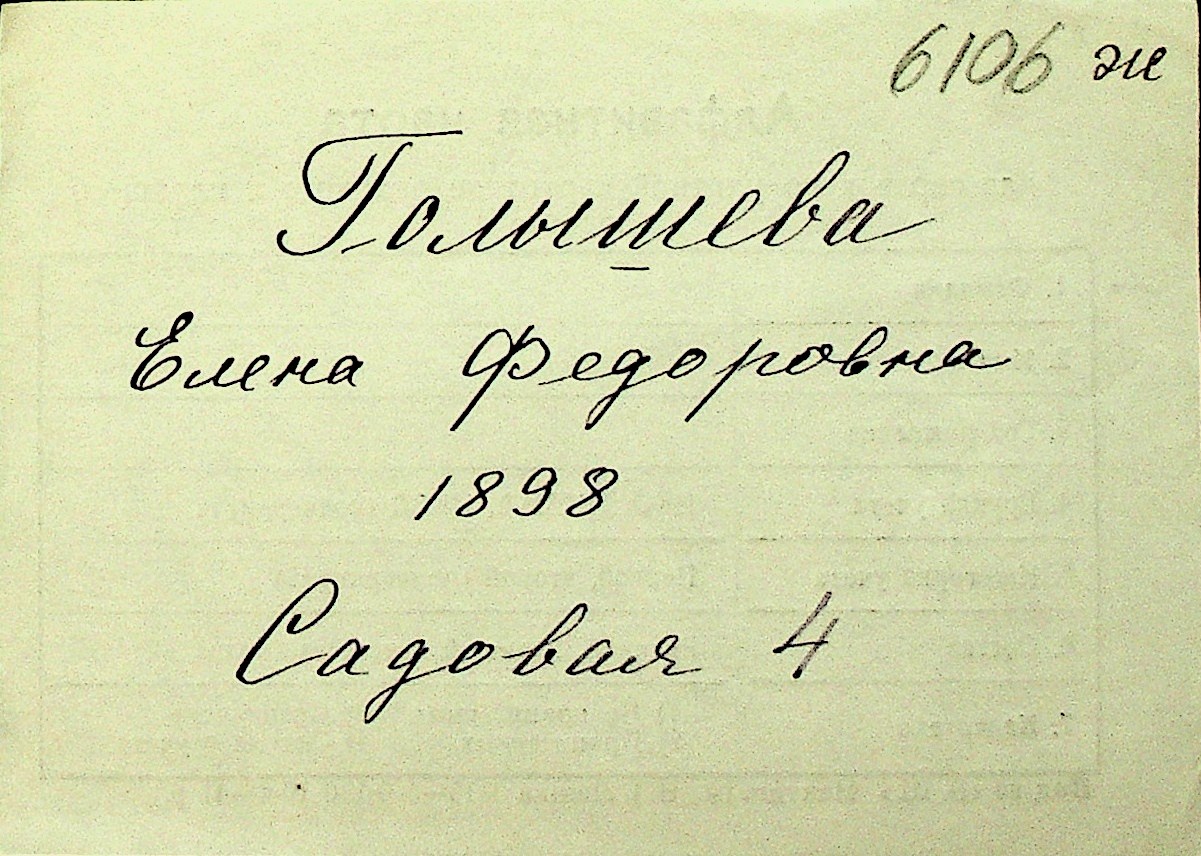 6106 ж
Голышева
Елена Федоровна
1898
Садовая 4